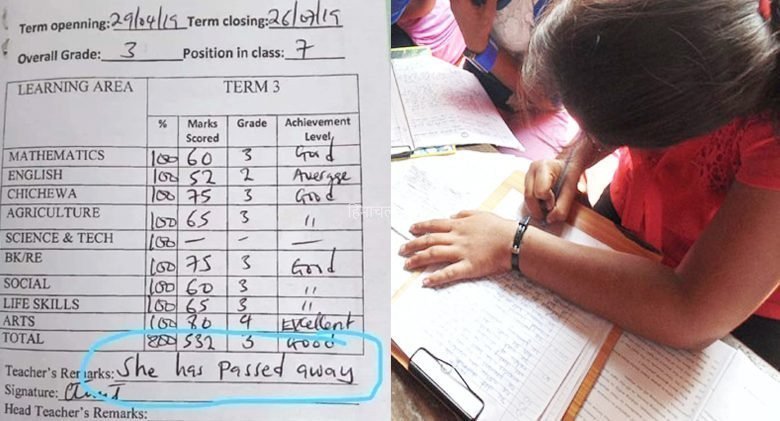 Term openning: 29/04/19 Term closing: 26/07/19
Overall Grade: 3 Position in class: 7
LEARNING AREA TERM 3
% Marks Scored Grade Achievement Level,
MATHEMATICS 100 60 3 Good
ENGLISH 100 52 2 Average
CHICHEWA 100 75 3 Good
AGRICULTURE 100 65 3 "
SCIENCE & TECH 100 — — —
BK/RE 100 75 3 Good
SOCIAL 100 60 3 "
LIFE SKILLS 100 65 3 "
ARTS 100 80 4 Excellent
TOTAL 800 532 3 Good
Teacher's Remarks: She has passed away
Signature:
Head Teacher's Remarks: